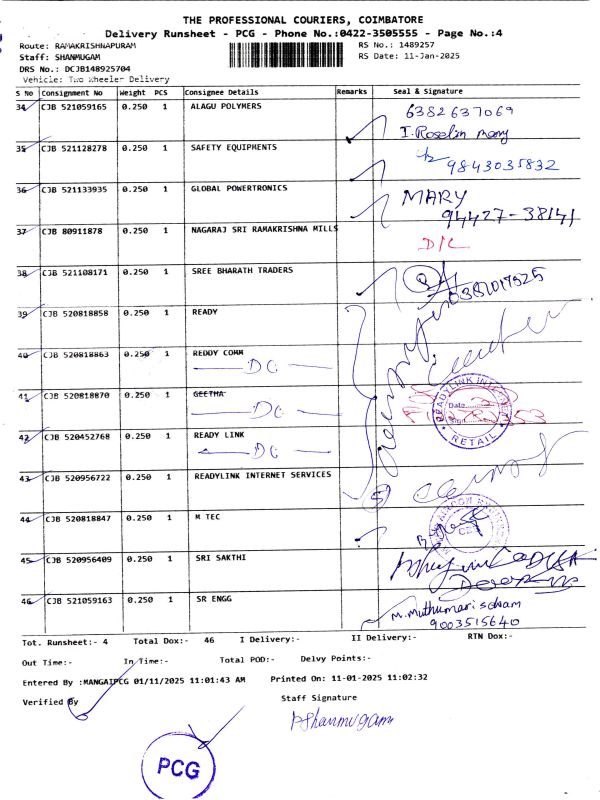 THE PROFESSIONAL COURIERS, COIMBATORE
Delivery Runsheet - PCG - Phone No.:0422-3505555 - Page No.:4
Route: RAMAKRISHNAPURAM
RS No.: 1489257
Staff: SHANMUGAM
RS Date: 11-Jan-2025
DRS No.: DCJB148925704
Vehicle: Two Wheeler Delivery
S No Consignment No Weight PCS Consignee Details Remarks Seal & Signature
34 CJB 521059165 0.250 1 ALAGU POLYMERS 6382637069
I. Roselin mary
35 CJB 521128278 0.250 1 SAFETY EQUIPMENTS
9843035832
36 CJB 521133935 0.250 1 GLOBAL POWERTRONICS MARY
94427-38141
37 CJB 80911878 0.250 1 NAGARAJ SRI RAMAKRISHNA MILLS
D/C
38 CJB 521108171 0.250 1 SREE BHARATH TRADERS
39 CJB 520818858 0.250 1 READY
40 CJB 520818863 0.250 1 REDDY COMM
DC
41 CJB 520818870 0.250 1 GEETHA
DC
42 CJB 520452768 0.250 1 READY LINK
DC
READYLINK INTERNET
Date
RETAIL
43 CJB 520956722 0.250 1 READYLINK INTERNET SERVICES
5
44 CJB 520818847 0.250 1 M TEC
45 CJB 520956409 0.250 1 SRI SAKTHI
46 CJB 521059163 0.250 1 SR ENGG
9003515640
Tot. Runsheet:- 4 Total Dox:- 46 I Delivery:- II Delivery:- RTN Dox:-
Out Time:- In Time:- Total POD:- Delvy Points:-
Entered By :MANGAIPCG 01/11/2025 11:01:43 AM Printed On: 11-01-2025 11:02:32
Verified By
Staff Signature
PShanmugam
PCG